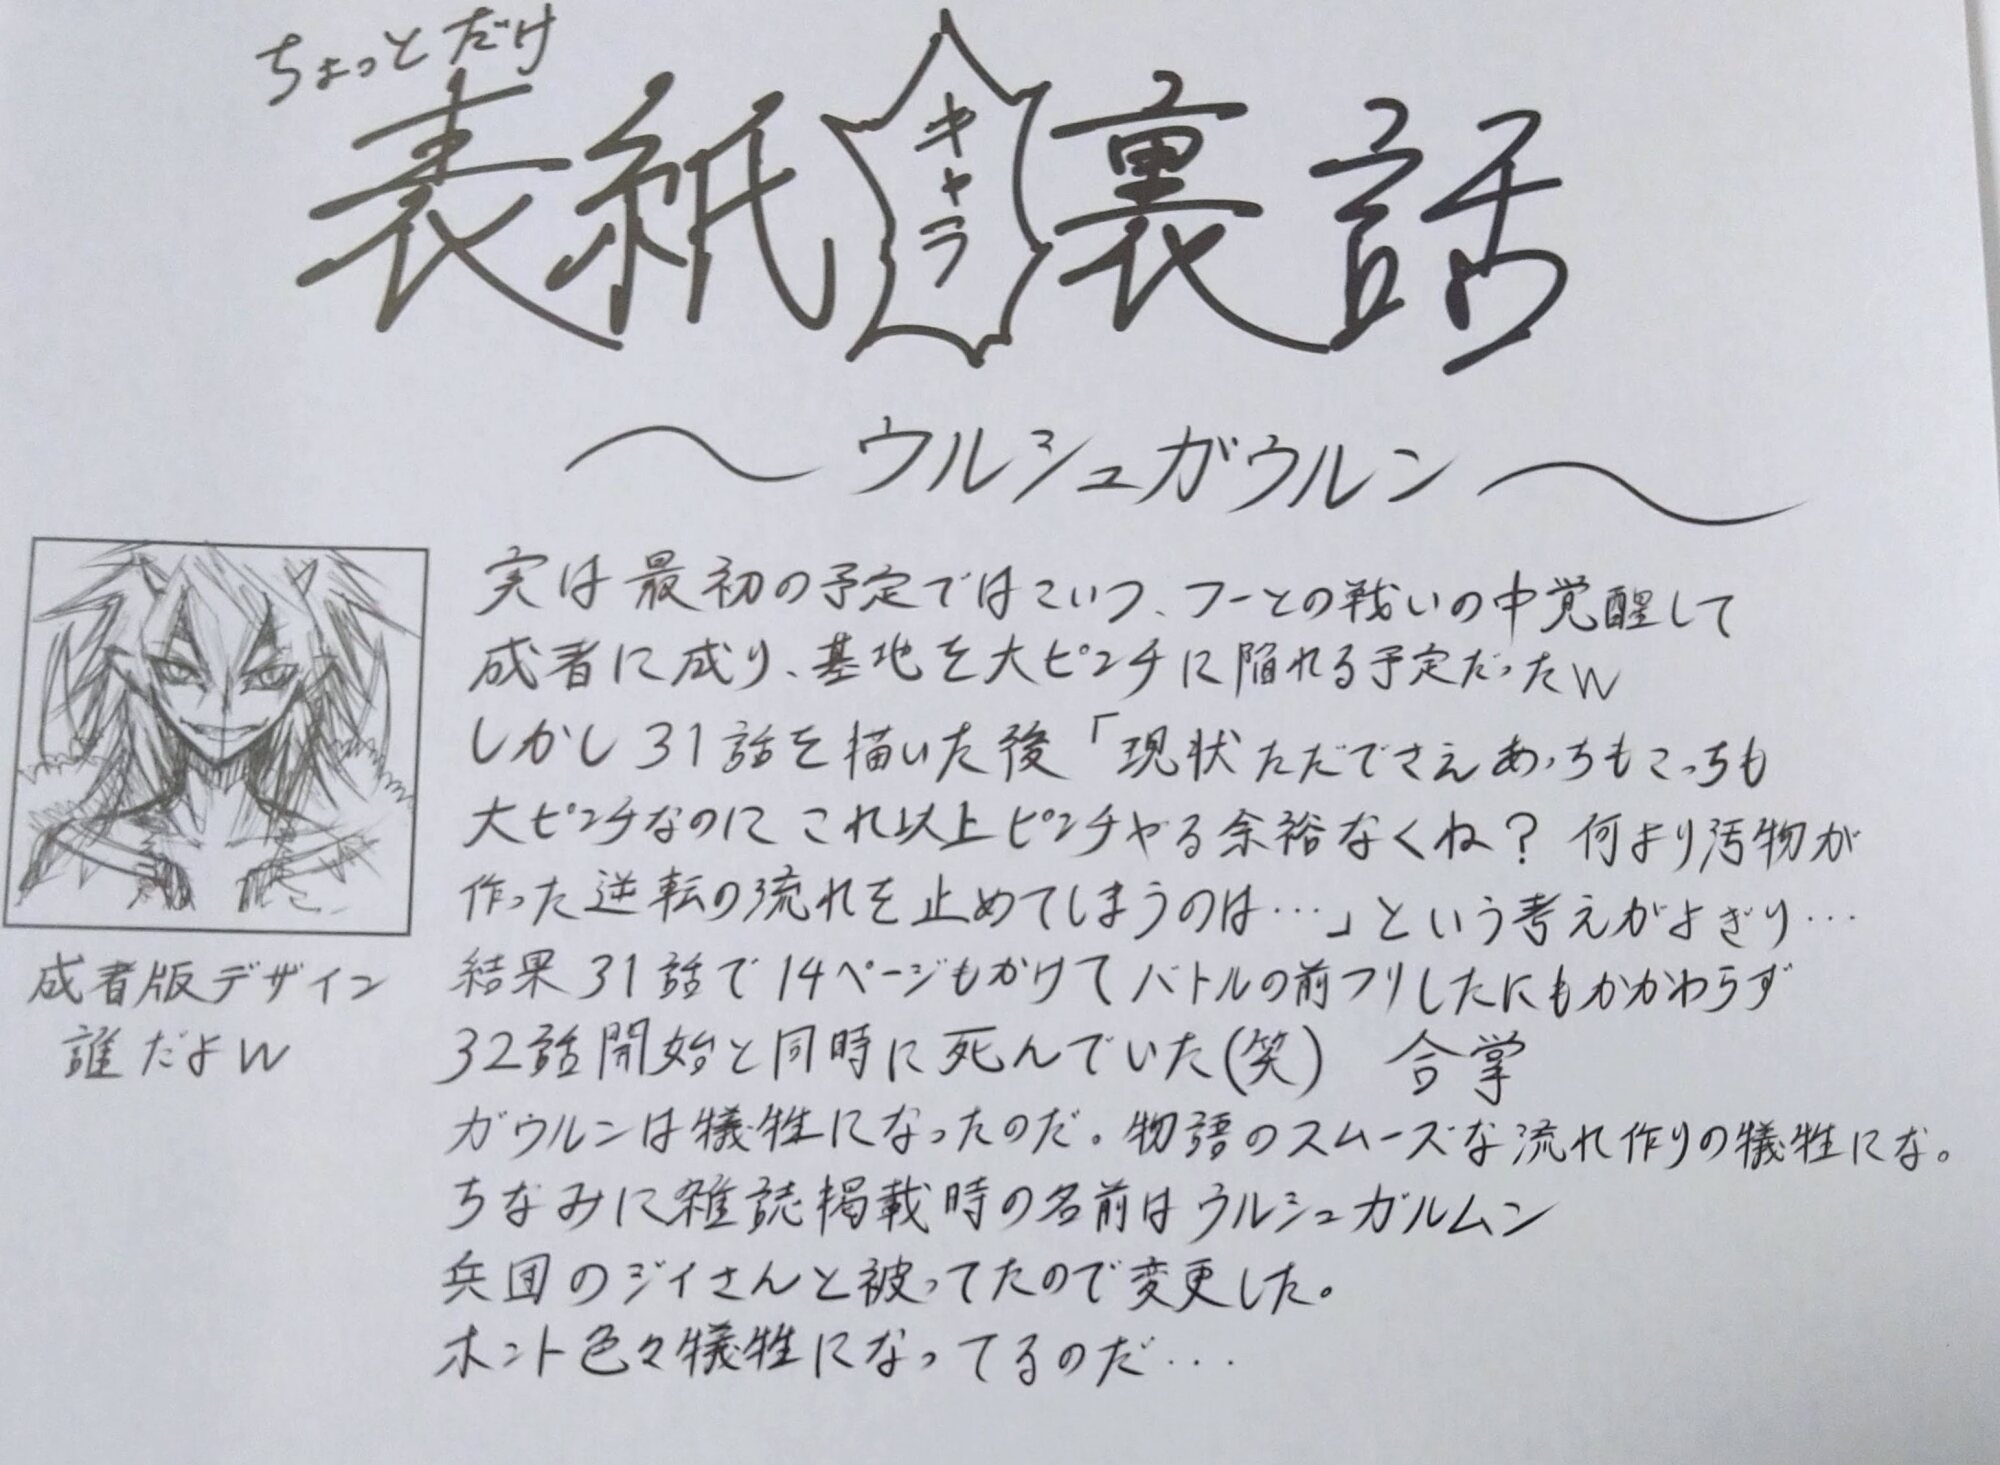 ちょっとだけ
表紙キャラ裏話
～ウルシュガウルン～
実は最初の予定ではこいつ、フーとの戦いの中覚醒して
成者に成り、基地を大ピンチに陥れる予定だったw
しかし31話を描いた後「現状ただでさえあっちもこっちも
大ピンチなのにこれ以上ピンチやる余裕なくね？何より汚物が
作った逆転の流れを止めてしまうのは…」という考えがよぎり…
結果31話で14ページもかけてバトルの前フリしたにもかかわらず
32話開始と同時に死んでいた(笑) 合掌
ガウルンは犠牲になったのだ。物語のスムーズな流れ作りの犠牲にな。
ちなみに雑誌掲載時の名前はウルシュガルムン
兵団のジイさんと被ってたので変更した。
ホント色々犠牲になってるのだ…
成者版デザイン
誰だよw